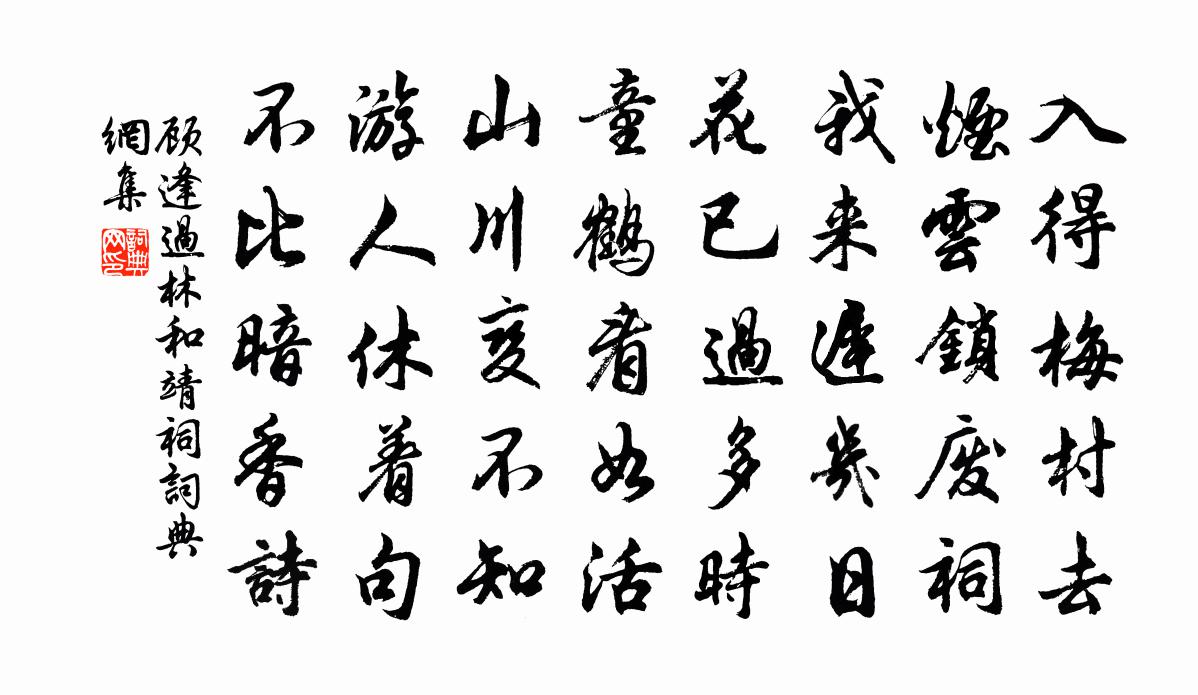 入得梅村去
煙雲鎖廢祠
我来遲幾日
花已過多時
童鶴看如活
山川変不知
游人休着句
不比暗香詩
顾逢過林和靖祠詞典
網集
詞典網印